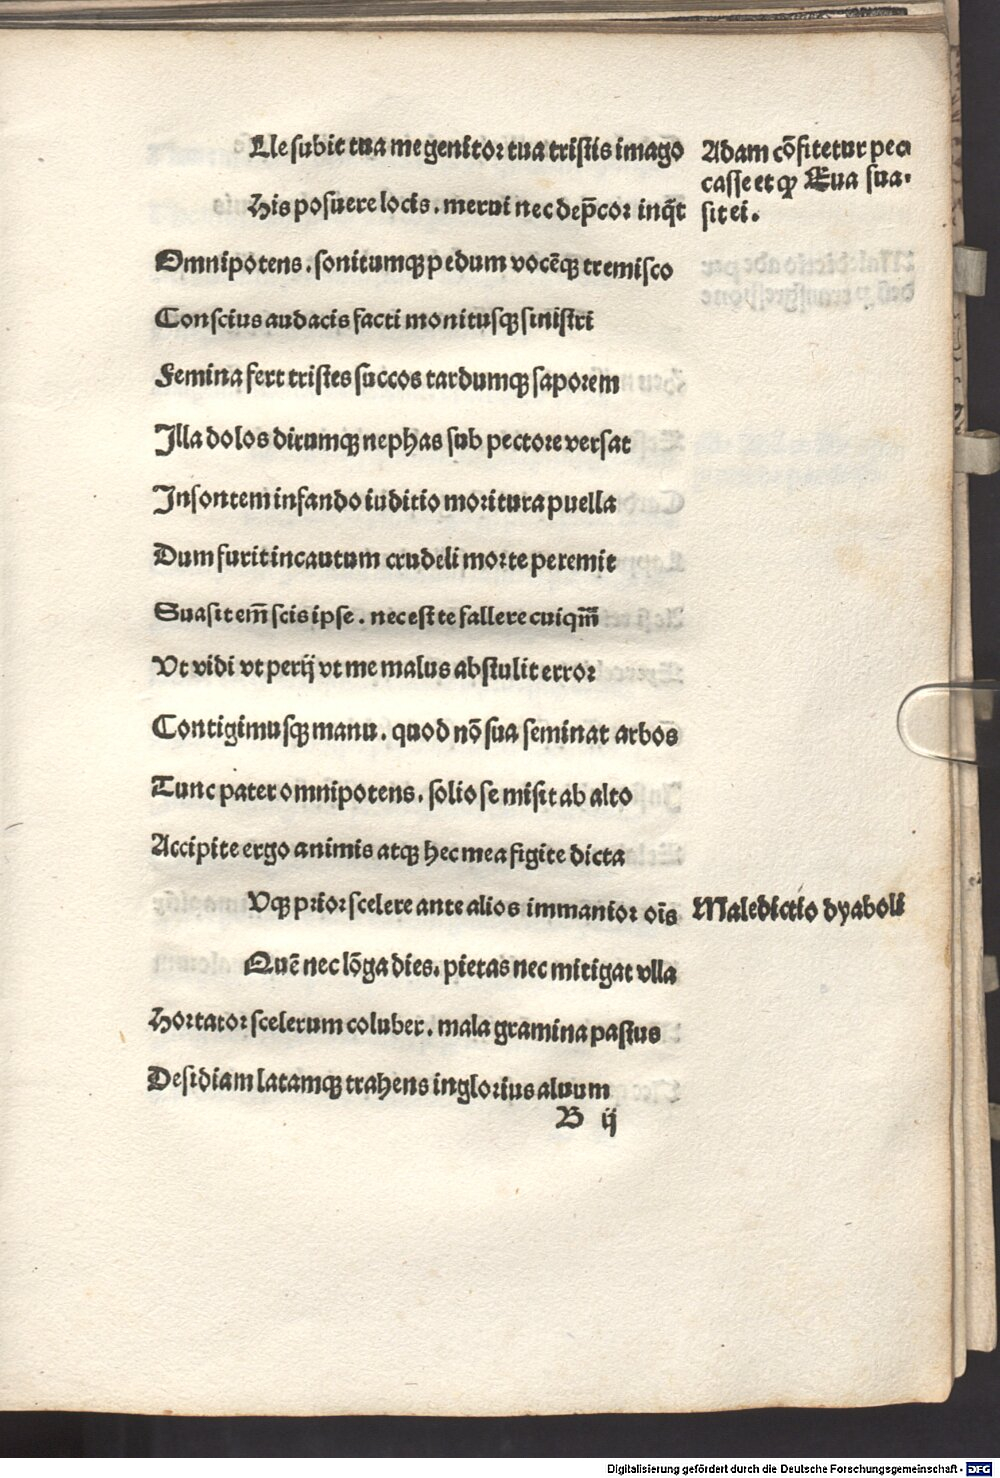 Lle subit tua me genitor tua tristis imago
His posuere locis . merui nec dep̄cor inq̄t
Omnipotens . sonitumqꝫ pedum vocēqꝫ tremisco
Conscius audacis facti monitusqꝫ sinistri
Femina fert tristes succos tardumqꝫ saporem
Illa dolos dirumqꝫ nephas sub pectore versat
Insontem infando iuditio moritura puella
Dum furit incautum crudeli morte peremit
Suasit em̄ scis ipse . nec est te fallere cuiqm̄
Vt vidi vt perij vt me malus abstulit error
Contigimusqꝫ manu . quod nō sua seminat arbos
Tunc pater omnipotens . solio se misit ab alto
Accipite ergo animis atqꝫ hec mea figite dicta
Vqꝫ prior scelere ante alios immanior oīs
Quē nec lōga dies . pietas nec mitigat vlla
Hortator scelerum coluber . mala gramina pastus
Desidiam latamqꝫ trahens inglorius aluum
B ij
Adam cōfitetur pec
casse et qꝫ Eua sua-
sit ei .
Maledictio dyaboli
Digitalisierung gefördert durch die Deutsche Forschungsgemeinschaft - DFG